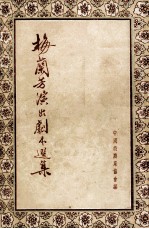 梅蘭芳演出劇本選集
中國戲劇家協會編